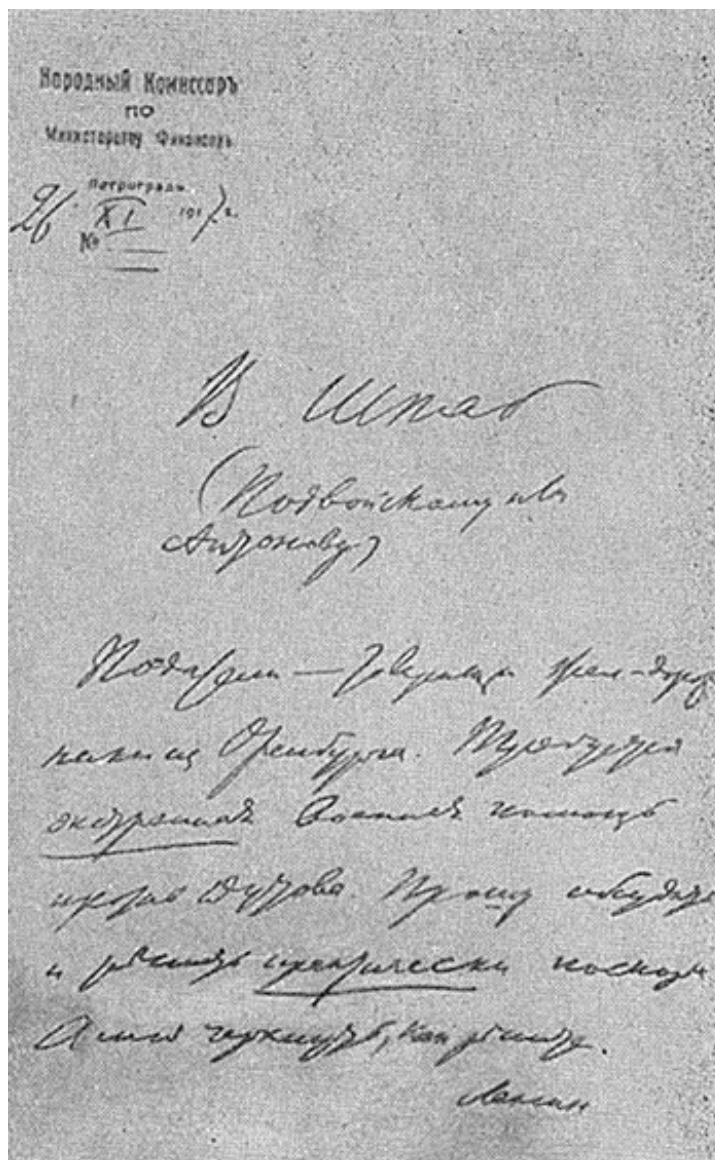 Народный Комиссаръ
ПО
Министерству Финансовъ
Петроградъ
26 XI 1917 г.
№
В штаб
(Подвойскому или
Антонову)
Податели — товарищи жел.-дорож
ники из Оренбурга. Требуется
экстренная военная помощь
против Дутова. Прошу обсудить
и рѣшить практически поскорѣ
А мнѣ черкнуть, как рѣшите.
Ленин